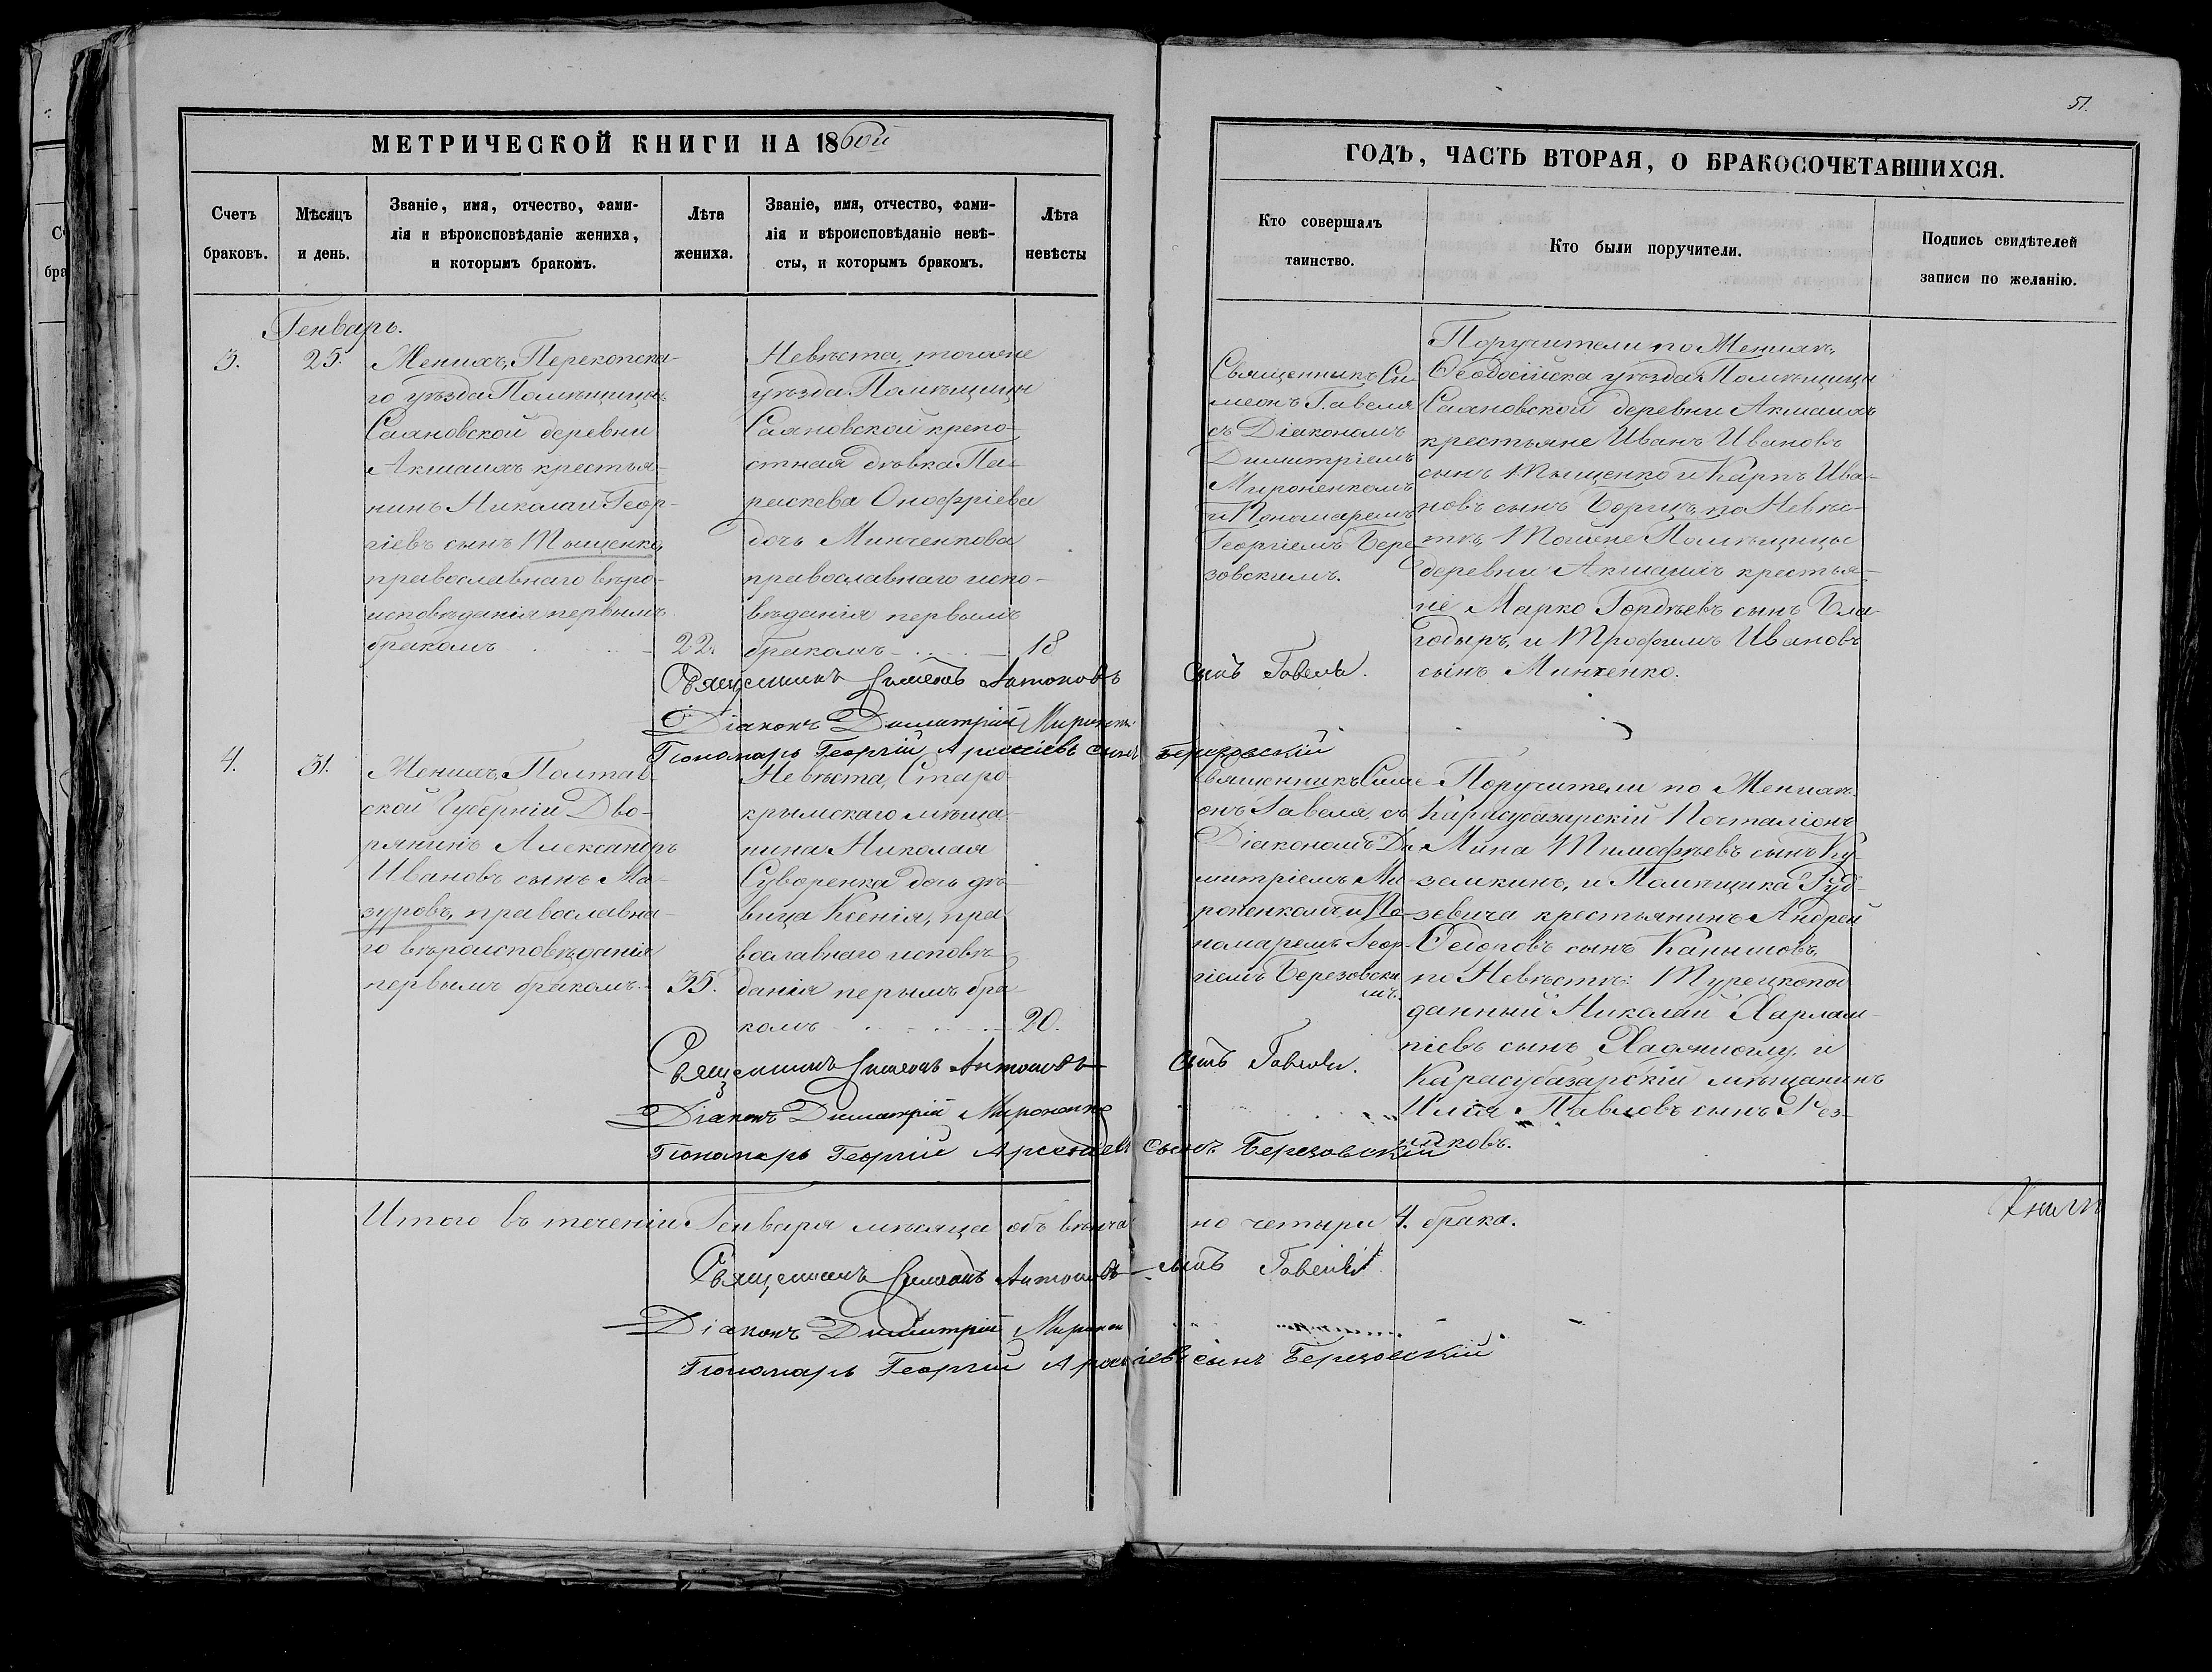 51.
МЕТРИЧЕСКОЙ КНИГИ НА 1860й
Счетъ
браковъ.
Мѣсяцъ
и день.
Званіе, имя, отчество, фами-
лія и вѣроисповѣданіе жениха,
и которымъ бракомъ.
Лѣта
жениха.
Званіе, имя, отчество, фами-
лія и вѣроисповѣданіе невѣ-
сты, и которымъ бракомъ.
Лѣта
невѣсты
ГОДЪ, ЧАСТЬ ВТОРАЯ, О БРАКОСОЧЕТАВШИХСЯ.
Кто совершалъ
таинство.
Кто были поручители.
Подпись свидѣтелей
записи по желанію.
Генварь.
3.
25.
Женихъ, Перекопска-
го уѣзда Помѣщицы
Саяновской деревни
крестья-
нинъ Николай Геор-
гіевъ сынъ Тыщенко,
православнаго вѣро-
исповѣданія первымъ
бракомъ
22.
Невѣста, тогоже
уѣзда Помѣщицы
Саяновской крепо-
стная дѣвка Па-
раскева Онофріева
дочь Минченкова
православнаго испо-
вѣданія первымъ
бракомъ
18
Священникъ Си-
меонъ Гавеля
съ Діакономъ
Димитріемъ
Мироненкомъ
и Пономаремъ
Георгіемъ Бере-
зовскимъ.
Поручители по Женихѣ,
Ѳеодосійска уѣзда Помѣщицы
Саяновской деревни
крестьяне Иванъ Ивановъ
сынъ Тыщенко и Карпъ Ива-
новъ сынъ по Невѣс-
тѣ, Тойже Помѣщицы
деревни крестья-
не Марко Гордѣевъ сынъ Бла-
годыръ, и Трофимъ Ивановъ
сынъ Минченко.
Священникъ Симеонъ Антоновъ сынъ Гавеля.
Діаконъ Димитрій Мироненко
Пономарь Георгій Арсеніевъ сынъ Березовскій
4.
31.
Женихъ, Полтав-
ской Губерніи Дво-
рянинъ Александръ
Ивановъ сынъ Ма-
зуровъ, православна-
го вѣроисповѣданія
первымъ бракомъ.
35.
Невѣста, Старо-
крымскаго мѣща-
нина Николая
Суворенка дочь дѣ-
вица Ксенія, пра-
вославнаго исповѣ-
данія перымъ бра-
комъ
20.
Священникъ Симе-
онъ Гавеля, съ
Діакономъ Ди-
митріемъ Ми-
роненкомъ и По-
номаремъ Геор-
гіемъ Березовски-
мъ.
Поручители по Женихѣ
Карасубазарскій Почталіонъ
Мина Тимофѣевъ сынъ Ку-
земкинъ, и Помѣщика Гуд-
зевича крестьянинъ Андрей
сынъ
по Невѣстѣ: Турецкопод-
данный Николай Харлам-
піевъ сынъ и
Карасубазарскій мѣщанинъ
Илія Павловъ сынъ Рез-
никовъ.
Священникъ Симеонъ Антоновъ сынъ Гавеля.
Діаконъ Димитрій Мироненко
Пономарь Георгій Арсеніевъ сынъ Березовскій
Итого въ теченіи Генваря мѣсяца объ вѣнча- но четыри 4. брака.
Священникъ Симеонъ Антоновъ сынъ Гавеля
Діаконъ Димитрій Миронен
Пономарь Георгій Арсеніевъ сынъ Березовскій